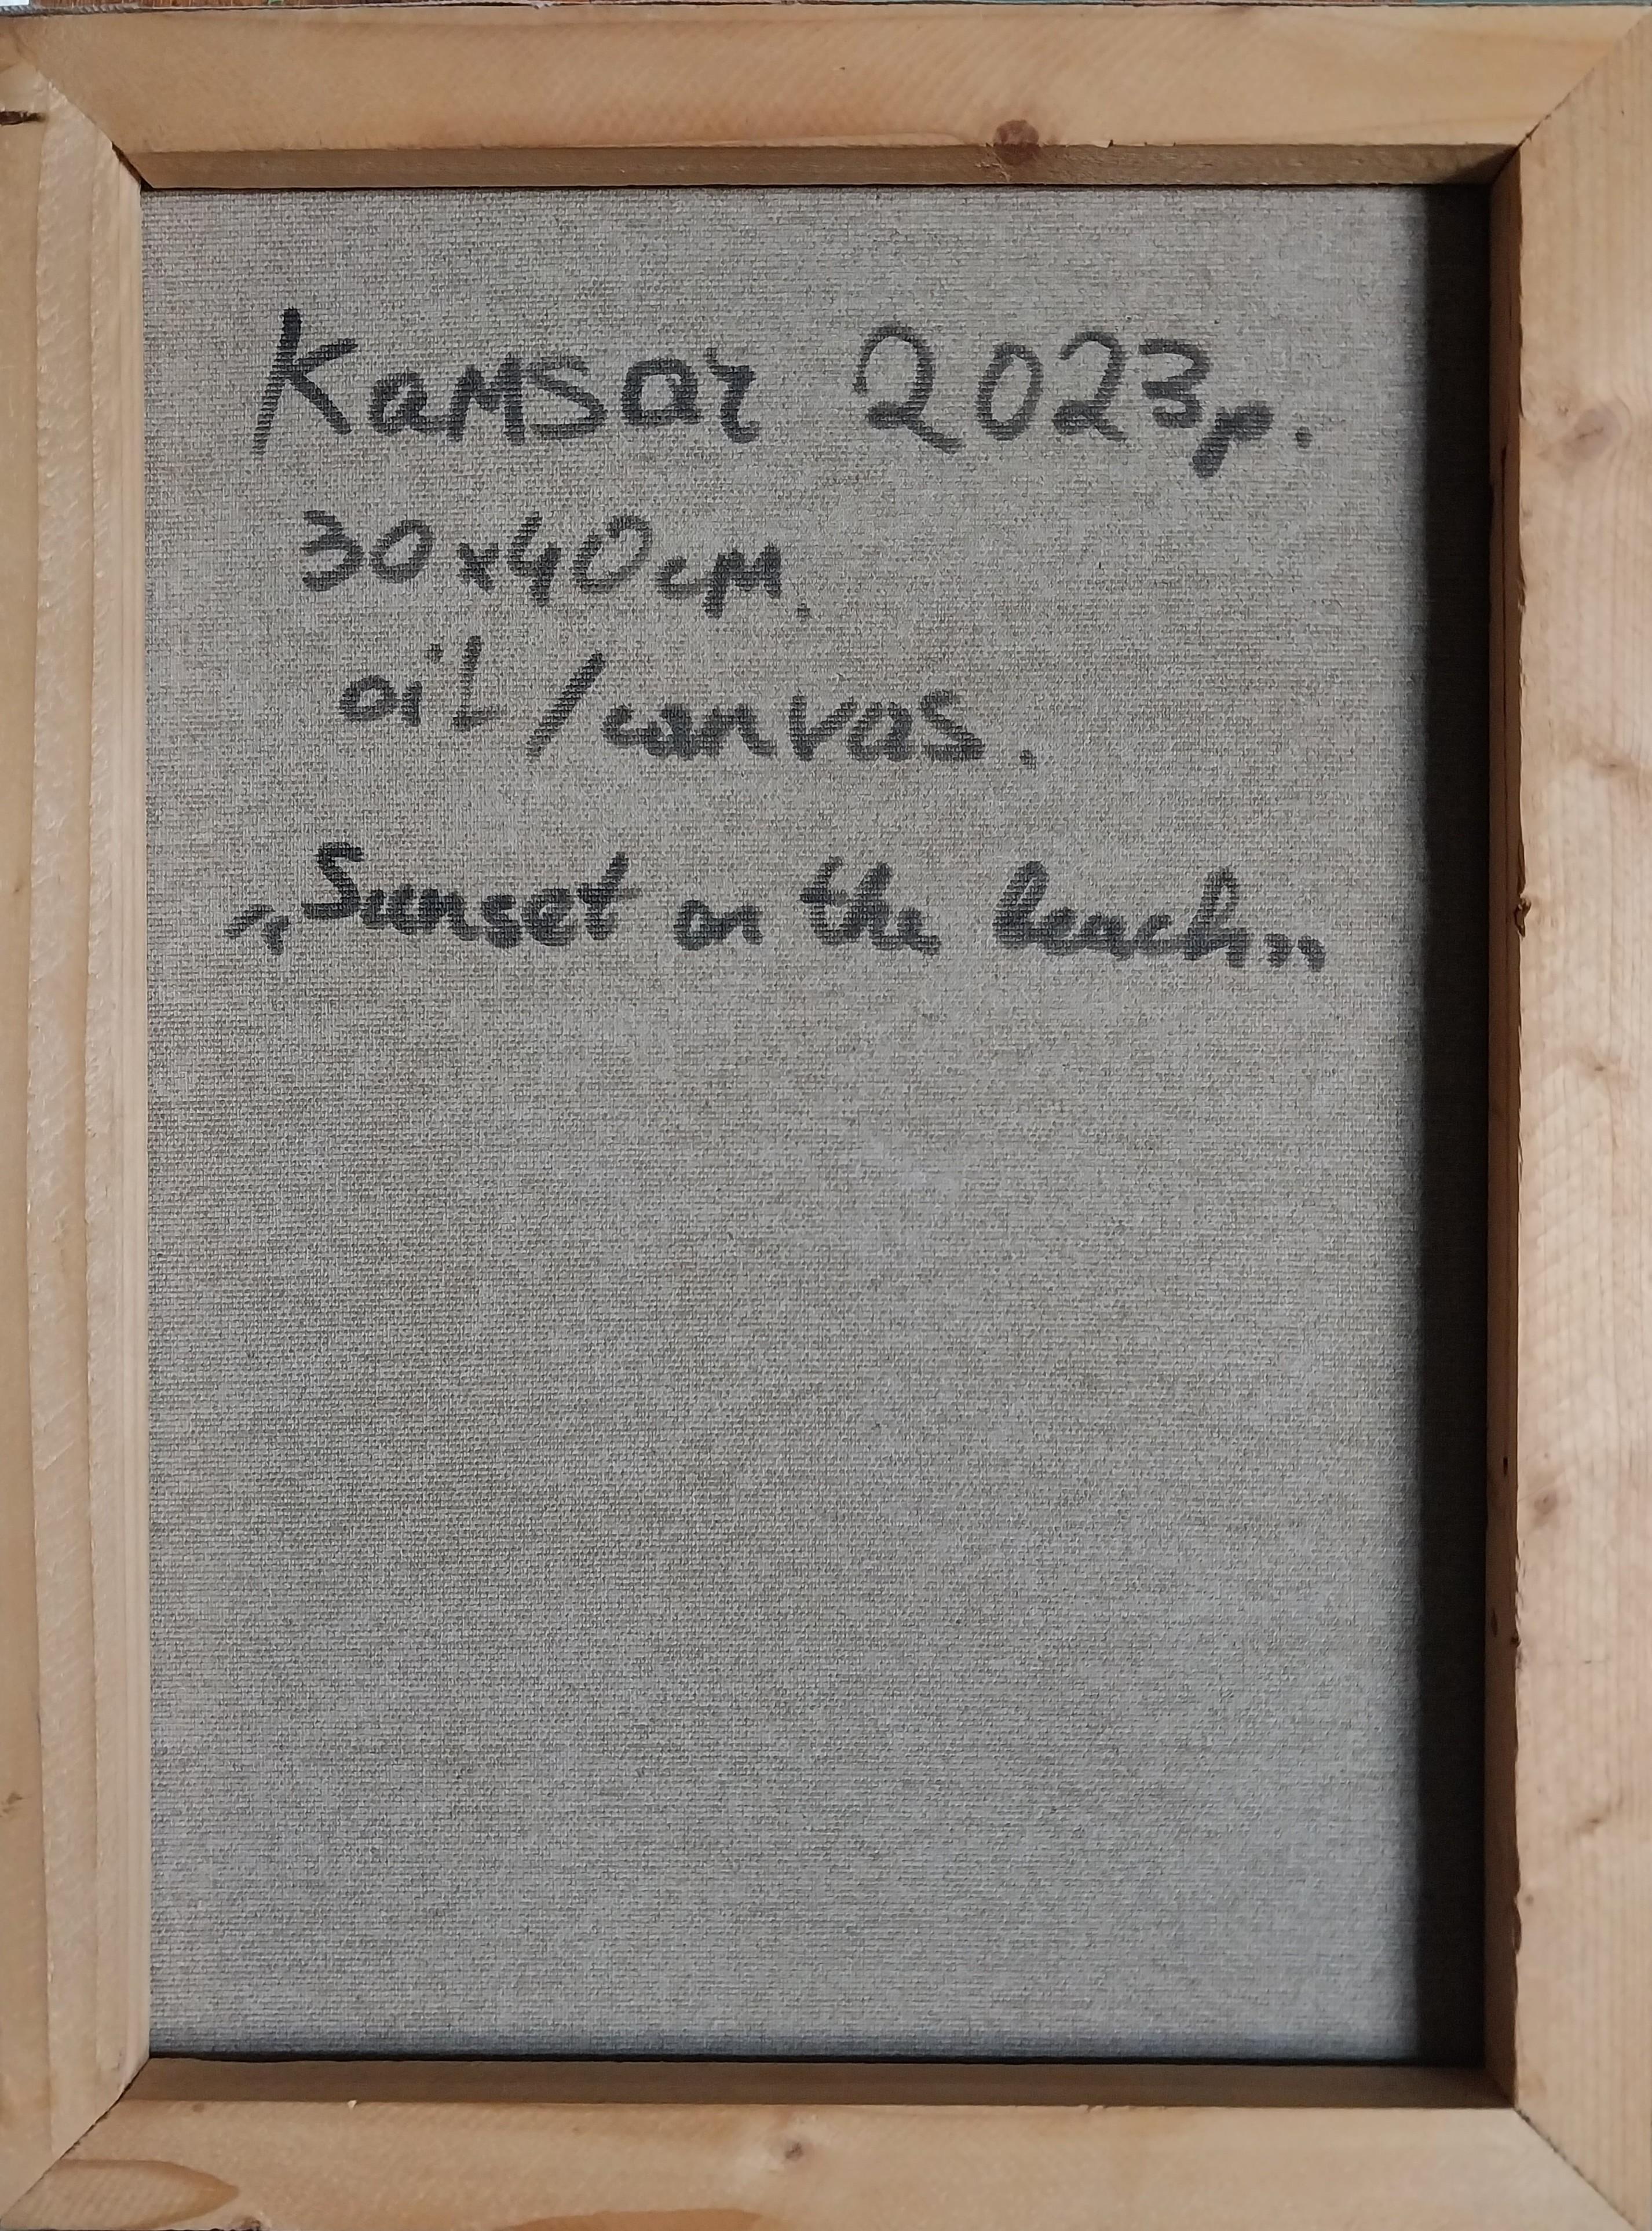 Kamsar 2023р.
30x40см.
oil/canvas.
„Sunset on the beach”